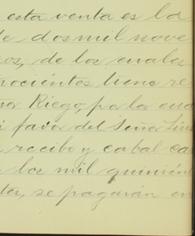 esta venta es la
de dos mil nove
os, de los cuales
nocientos tiene re
Riego, por la cua
i favor del Señor
recibo y cabal ca
los mil quinien
tos, se pagarán en